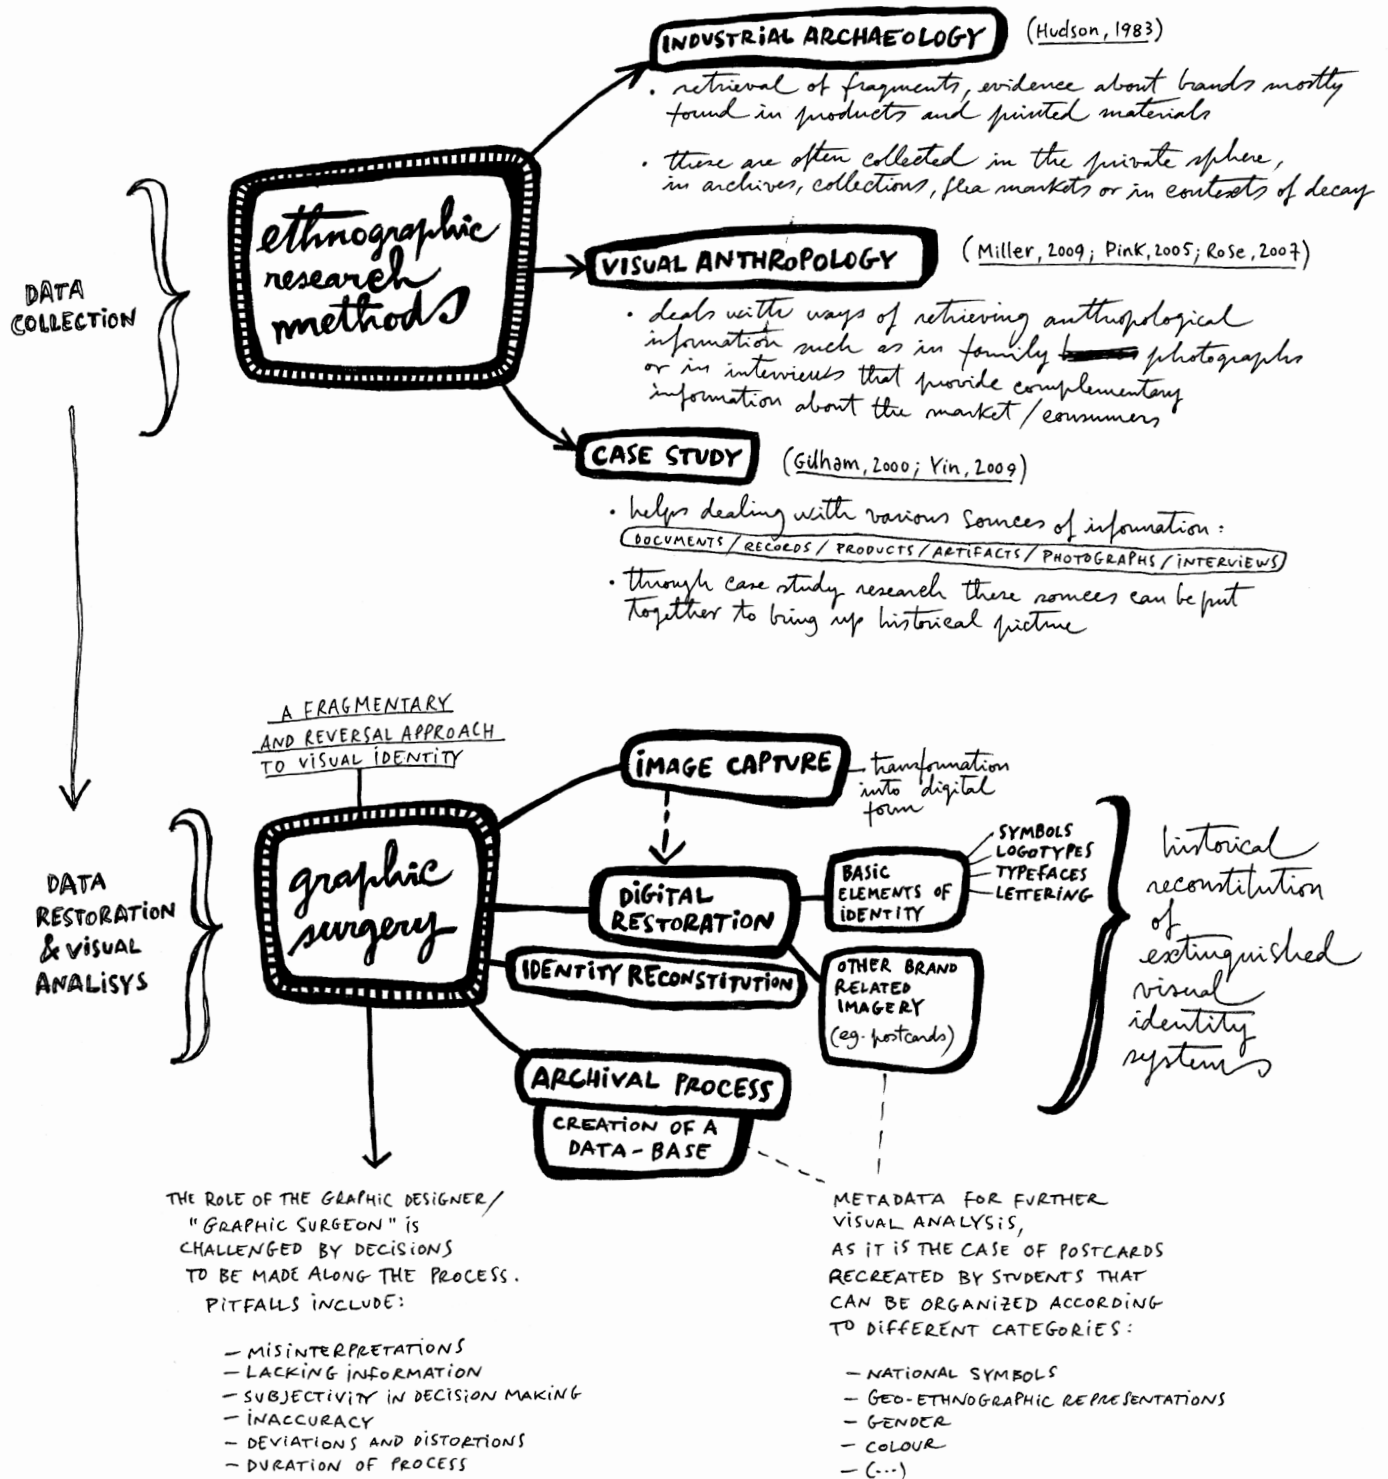 INDUSTRIAL ARCHAEOLOGY (Hudson, 1983)
• retrieval of fragments, evidence about brands mostly
found in products and printed materials
• these are often collected in the private sphere,
in archives, collections, flea markets or in contexts of decay
DATA
COLLECTION
ethnographic
research
methods
VISUAL ANTHROPOLOGY (Miller, 2009; Pink, 2005; Rose, 2007)
• deals with ways of retrieving anthropological
information such as in family photographs
or in interviews that provide complementary
information about the market/consumers
CASE STUDY (Gilham, 2000; Yin, 2009)
• helps dealing with various sources of information:
DOCUMENTS/RECORDS/PRODUCTS/ARTIFACTS/PHOTOGRAPHS/INTERVIEWS
• through case study research these sources can be put
together to bring up historical picture
A FRAGMENTARY
AND REVERSAL APPROACH
TO VISUAL IDENTITY
DATA
RESTORATION
& VISUAL
ANALISYS
graphic
surgery
IMAGE CAPTURE
transformation
into digital
form
DIGITAL
RESTORATION
BASIC
ELEMENTS OF
IDENTITY
SYMBOLS
LOGOTYPES
TYPEFACES
LETTERING
IDENTITY RECONSTITUTION
OTHER BRAND
RELATED
IMAGERY
(eg. postcards)
historical
reconstitution
of
extinguished
visual
identity
systems
ARCHIVAL PROCESS
CREATION OF A
DATA-BASE
THE ROLE OF THE GRAPHIC DESIGNER/
"GRAPHIC SURGEON" IS
CHALLENGED BY DECISIONS
TO BE MADE ALONG THE PROCESS.
PITFALLS INCLUDE:
– MISINTERPRETATIONS
– LACKING INFORMATION
– SUBJECTIVITY IN DECISION MAKING
– INACCURACY
– DEVIATIONS AND DISTORTIONS
– DURATION OF PROCESS
METADATA FOR FURTHER
VISUAL ANALYSIS,
AS IT IS THE CASE OF POSTCARDS
RECREATED BY STUDENTS THAT
CAN BE ORGANIZED ACCORDING
TO DIFFERENT CATEGORIES:
– NATIONAL SYMBOLS
– GEO-ETHNOGRAPHIC REPRESENTATIONS
– GENDER
– COLOUR
– (...)